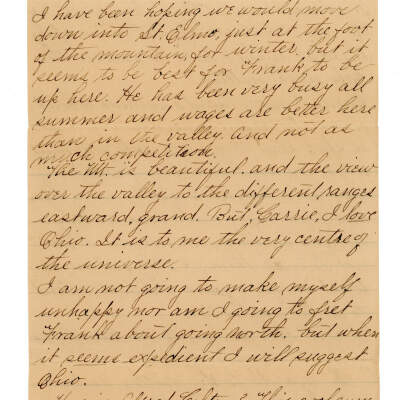 I have been hoping we would move
down into St. Elmo, just at the foot
of the mountain, for winter, but it
seems to be best for Frank to be
up here. He has been very busy all
summer and wages are better here
than in the valley. And not as
much competition.
The Mt. is beautiful. and the view
over the valley to the different ranges
eastward, grand. But, Carrie, I love
Ohio. It is to me the very centre of
the universe.
I am not going to make myself
unhappy nor am I going to fret
Frank about going north. but when
it seems expedient I will suggest
Ohio.